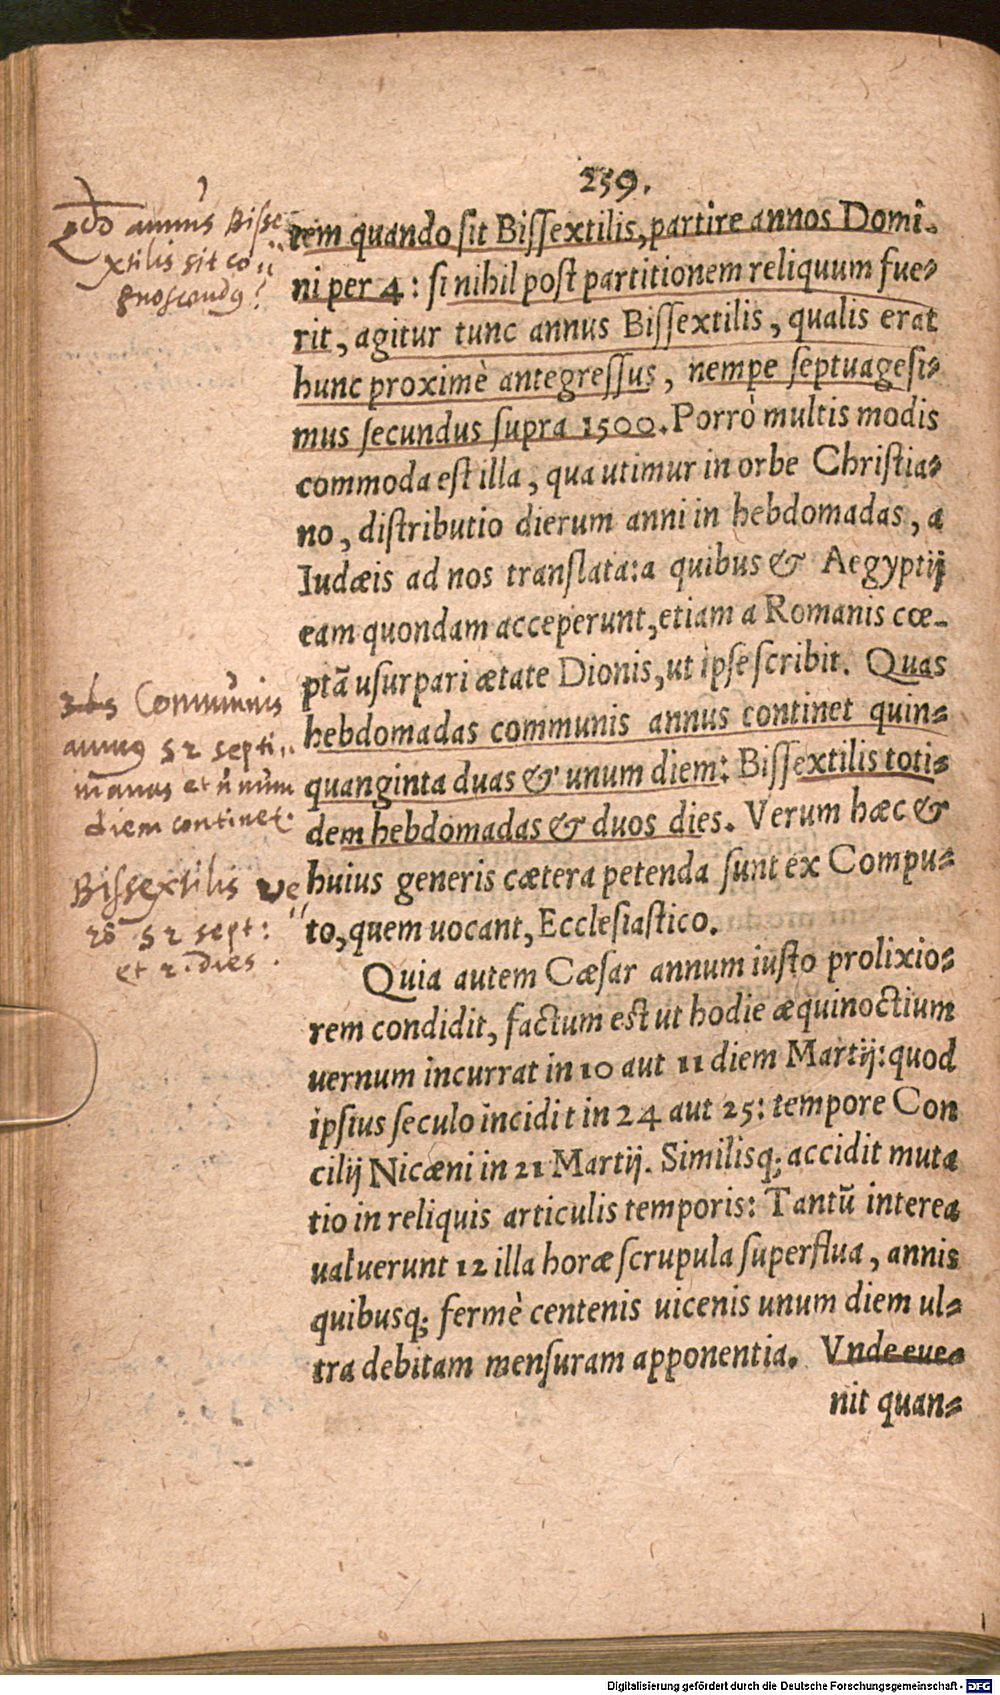 259.
rem quando sit Bissextilis, partire annos Domi-
ni per 4: si nihil post partitionem reliquum fue-
rit, agitur tunc annus Bissextilis, qualis erat
hunc proximè antegressus, nempe septuagesi-
mus secundus supra 1500. Porrò multis modis
commoda est illa, qua utimur in orbe Christia-
no, distributio dierum anni in hebdomadas, a
Iudæis ad nos translata: a quibus & Aegyptij
eam quondam acceperunt, etiam a Romanis cœ-
ptã usurpari ætate Dionis, ut ipse scribit. Quas
hebdomadas communis annus continet quin-
quanginta duas & unum diem: Bissextilis toti-
dem hebdomadas & duos dies. Verum hæc &
huius generis cætera petenda sunt ex Compu-
to, quem uocant, Ecclesiastico.
Quia autem Cæsar annum iusto prolixio-
rem condidit, factum est ut hodie æquinoctium
uernum incurrat in 10 aut 11 diem Martij: quod
ipsius seculo incidit in 24 aut 25: tempore Con
cilij Nicæni in 21 Martij. Similisq; accidit muta
tio in reliquis articulis temporis: Tantũ interea
ualuerunt 12 illa horæ scrupula superflua, annis
quibusq; fermè centenis uicenis unum diem ul-
tra debitam mensuram apponentia. Vnde eue-
nit quan-
annus Bisse
xtilis sit co
gnoscendꝰ?
Communis
annus 52 septi
manas et unum
diem continet.
Bissextilis ve
rò 52 sept:
et 2 dies.
Digitalisierung gefördert durch die Deutsche Forschungsgemeinschaft - DFG